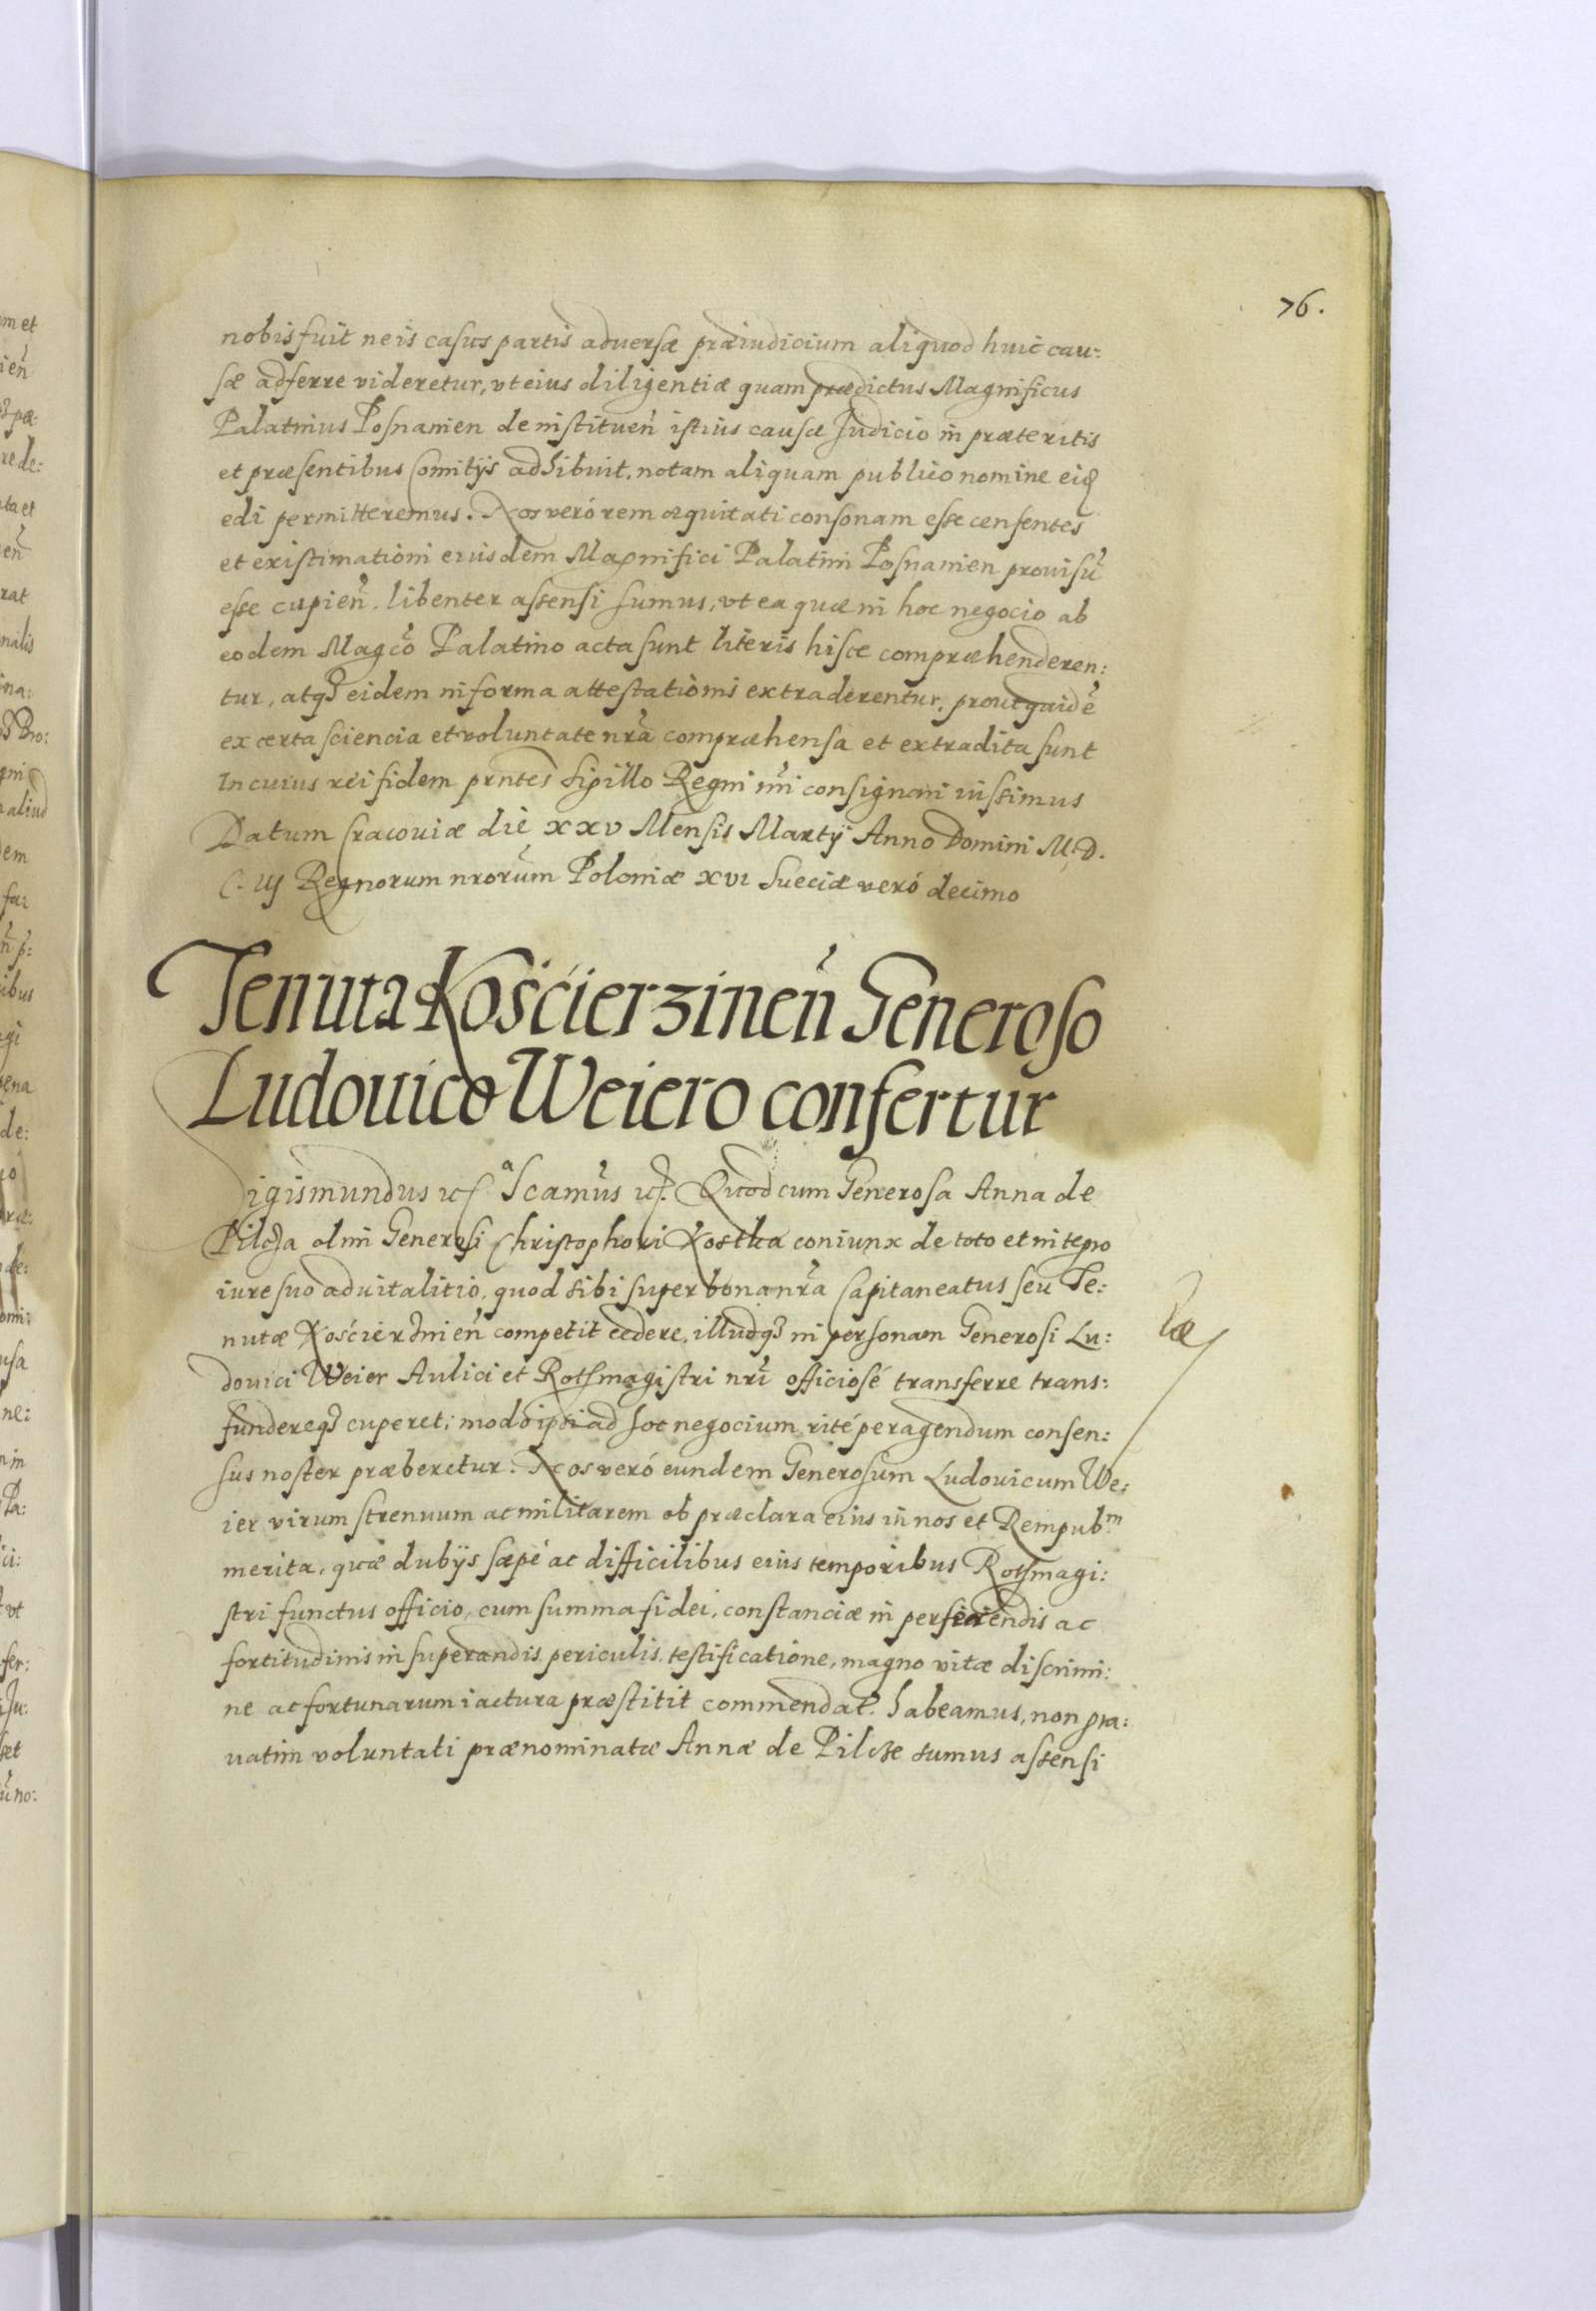 76.
nobis fuit ne is casus partis aduersæ præiudicium aliquod huic cau:
sæ adferre videretur, vt eius diligentiæ quam prædictus Magnificus
Palatinus Posnanien de instituen̄ istius causæ Judicio in præteritis
et præsentibus Comitijs adhibuit, notam aliquam publico nomine
edi permitteremus. Nos veró rem æquitati consonam esse censentes
et existimationi eiusdem Magnifici Palatini Posnanien prouisū
esse cupien̄. libenter assensi sumus, vt ea quæ in hoc negocio ab
eodem Magcō Palatino acta sunt literis hisce compræhenderen:
tur, atq₃ eidem in forma attestationis extraderentur, prout quidē
ex certa sciencia et voluntate nrā compræhensa et extradita sunt
In cuius rei fidem prntes Sigillo Regni nri consignari iussimus
Datum Cracouiæ die xxv Mensis Martij Anno Domini M.D.
C. iij Regnorum nrorum Poloniæ xvi Sueciæ veró decimo
Tenuta Kośćierzinen̄ Generoso
Ludouico Weiero confertur
Sigismundus Quod cum Generosa Anna de
Pilcza olim Generosi Christophori Kostka coniunx de toto et integro
iure suo aduitalitio, quod sibi super bona nrā Capitaneatus seu Te:
nutæ Kośćierzinien̄ competit cedere, illudq₃ in personam Generosi Lu:
douici Weier Aulici et Rothmagistri nrī officiosé transferre trans:
fundereq₃ cuperet; modo ipsi ad hoc negocium rité peragendum consen:
sus noster præberetur. Nos veró eundem Generosum Ludouicum We:
ier virum strenuum ac militarem ob præclara eius in nos et Rempubᵐ
merita, quæ dubijs sæpé ac difficilibus eius temporibus Rothmagi:
stri functus officio, cum summa fidei, constanciæ in perficiendis ac
fortitudinis in superandis periculis, testificatione, magno vitæ discrimi:
ne ac fortunarum iactura præstitit commendat. habeamus, non gra:
uatim voluntati prænominatæ Annæ de Pilcze sumus assensi